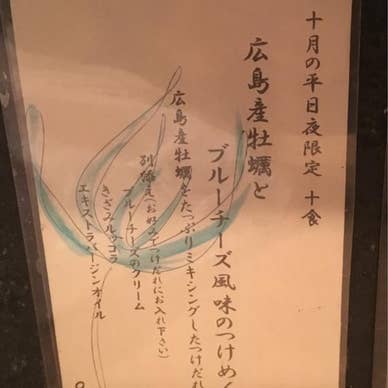 十月の平日夜限定 十食
広島産牡蠣と
ブルーチーズ風味のつけめ
広島産牡蠣をたっぷりミキシングしたつけだれ
別添え(お好みでつけだれにお入れ下さい)
ブルーチーズのクリーム
きざみルッコラ
エキストラバージンオイル